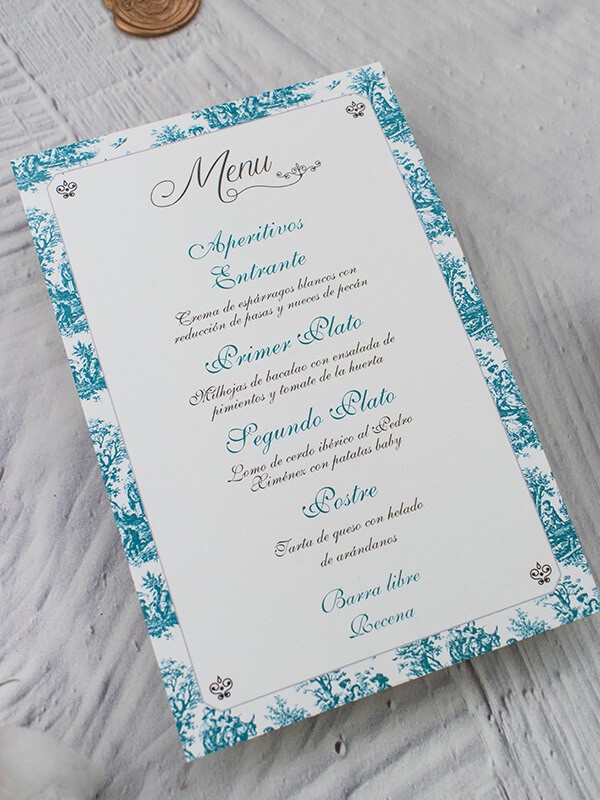 Menu
Aperitivos
Entrante
Crema de espárragos blancos con
reducción de pasas y nueces de pecán
Primer Plato
Milhojas de bacalao con ensalada de
pimientos y tomate de la huerta
Segundo Plato
Lomo de cerdo ibérico al Pedro
Ximénez con patatas baby
Postre
Tarta de queso con helado
de arándanos
Barra libre
Recena